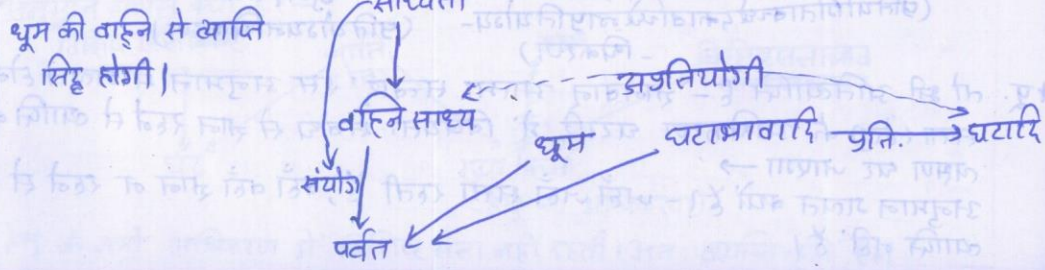 साध्यता
धूम की वह्नि से व्याप्ति
सिद्ध होगी।
अप्रतियोगी
वह्नि साध्य
धूम घटाभावादि प्रति. घटादि
संयोग
पर्वत